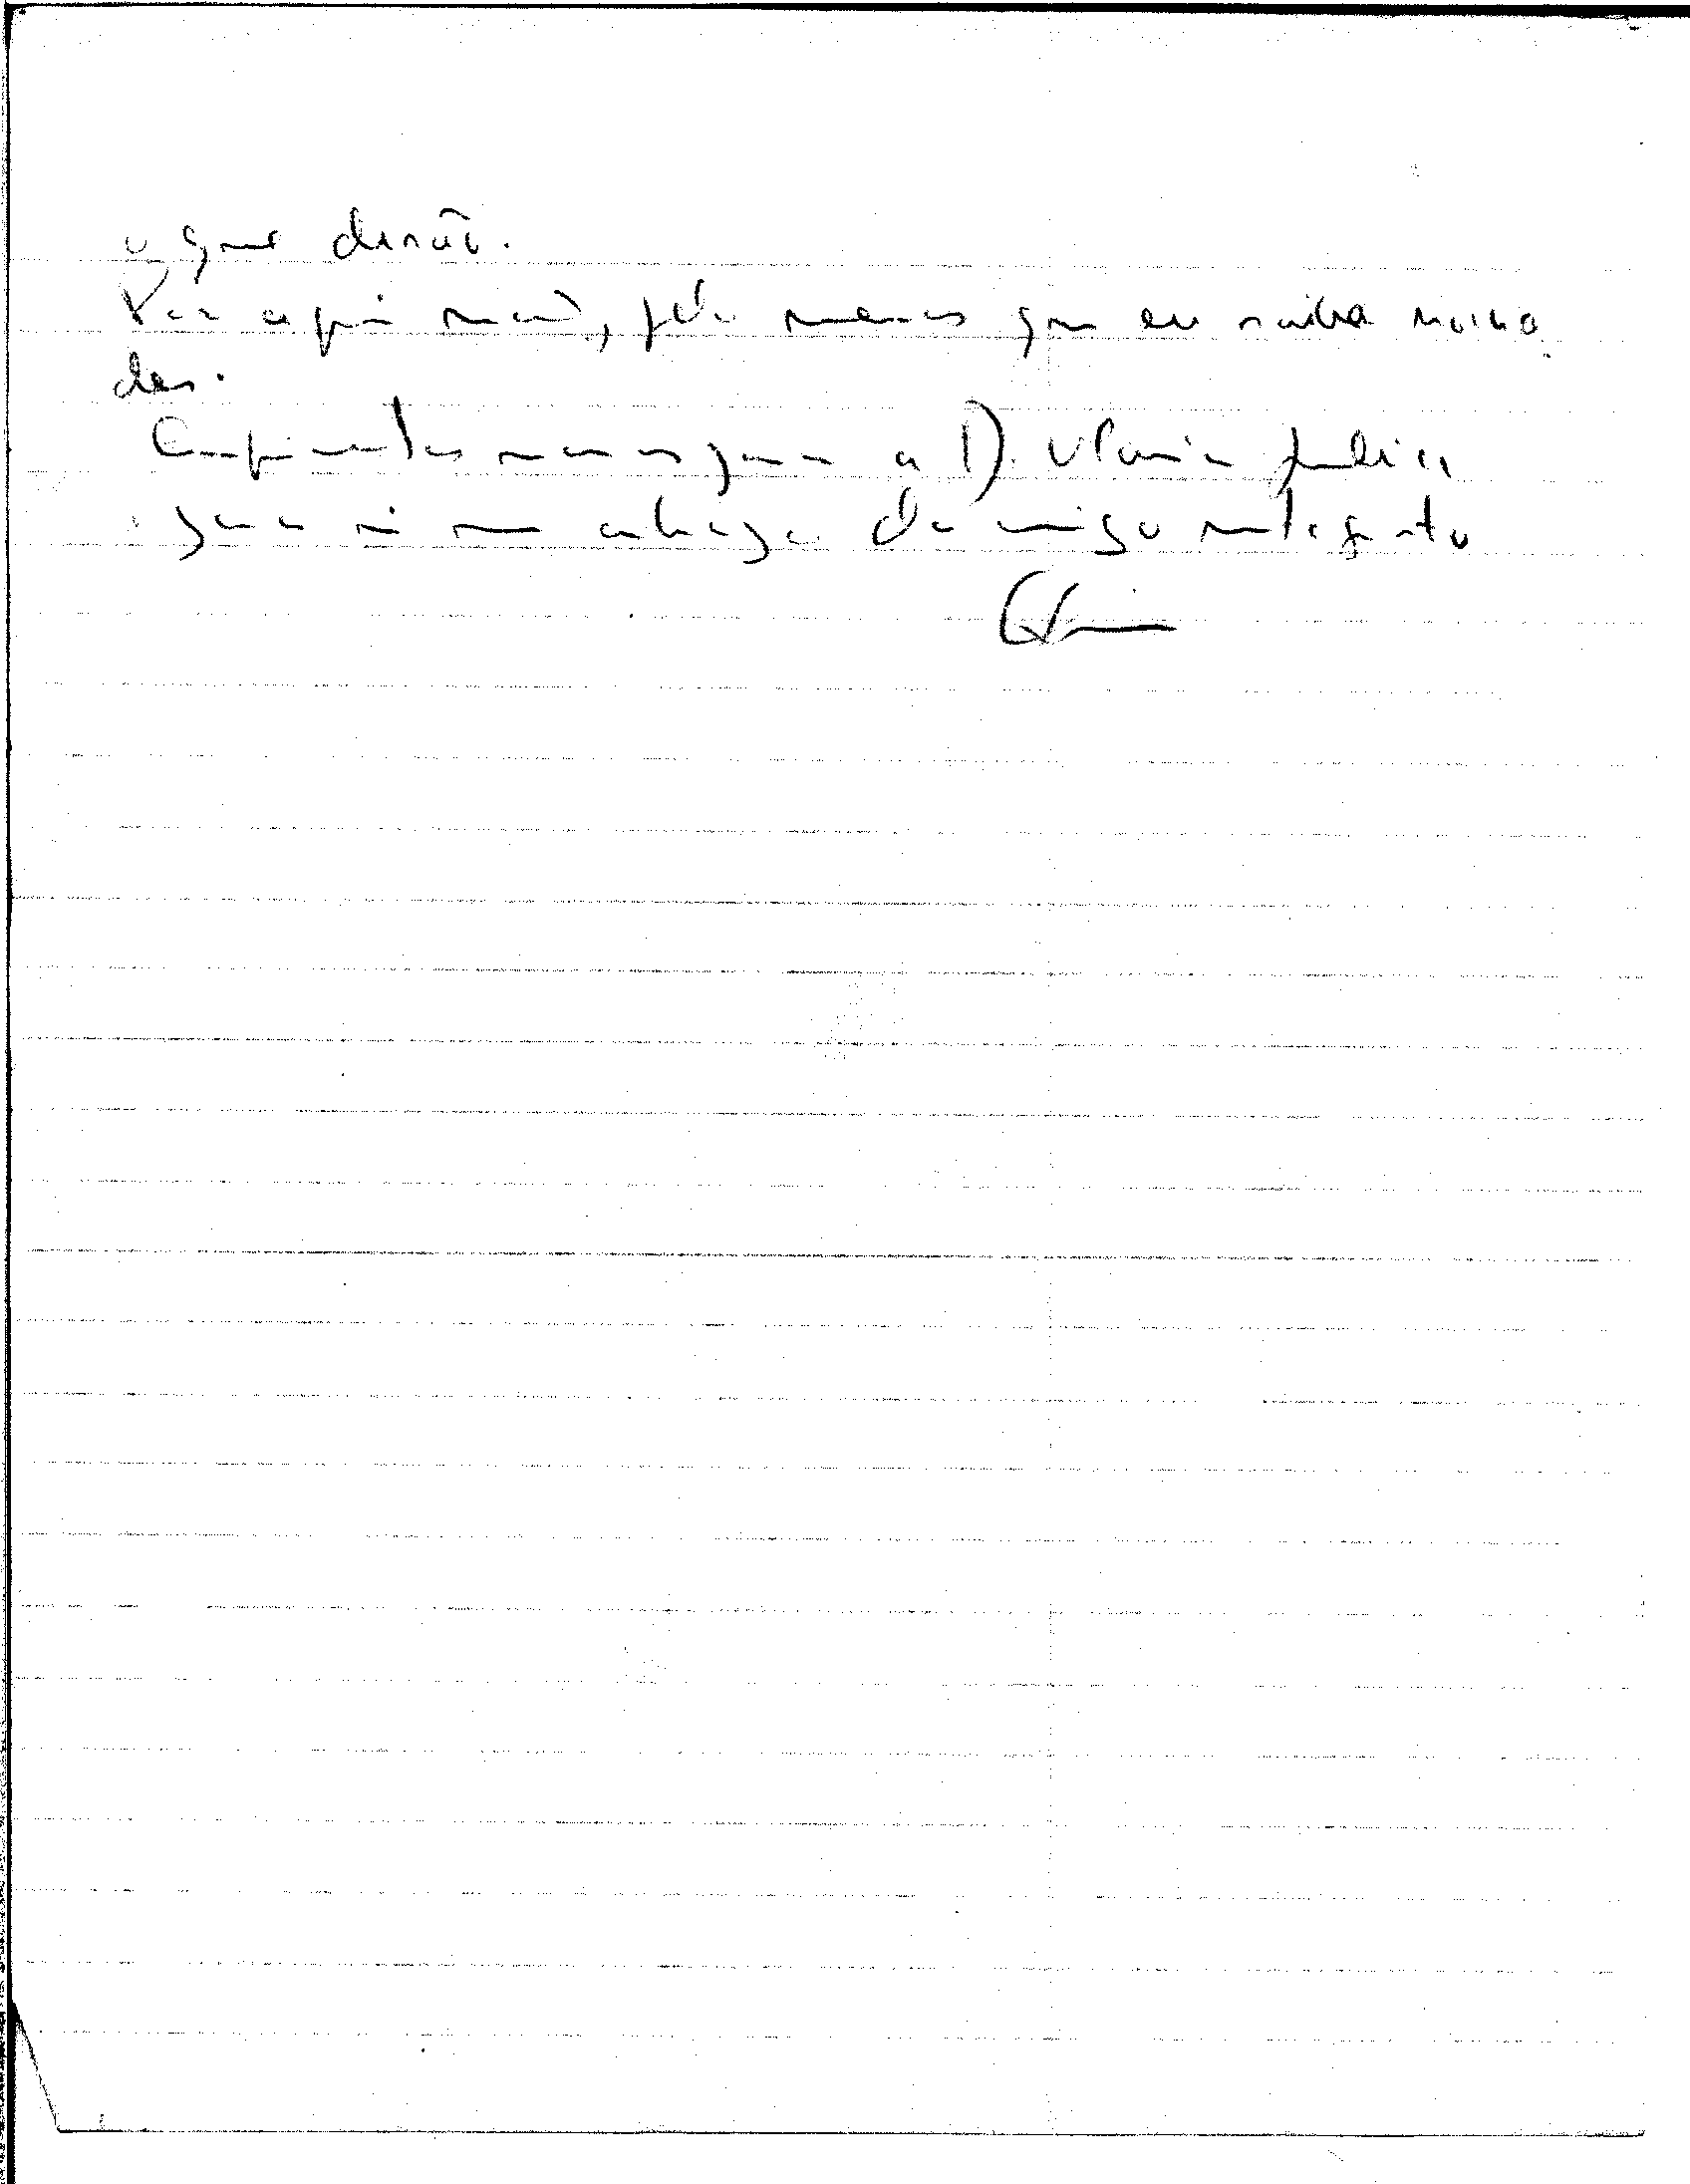 o que dirão.
Por aqui nada, pelo menos que eu saiba novida
des.
Cumprimentos meus para a D. Maria Judite
para si um abraço do amigo muito grato